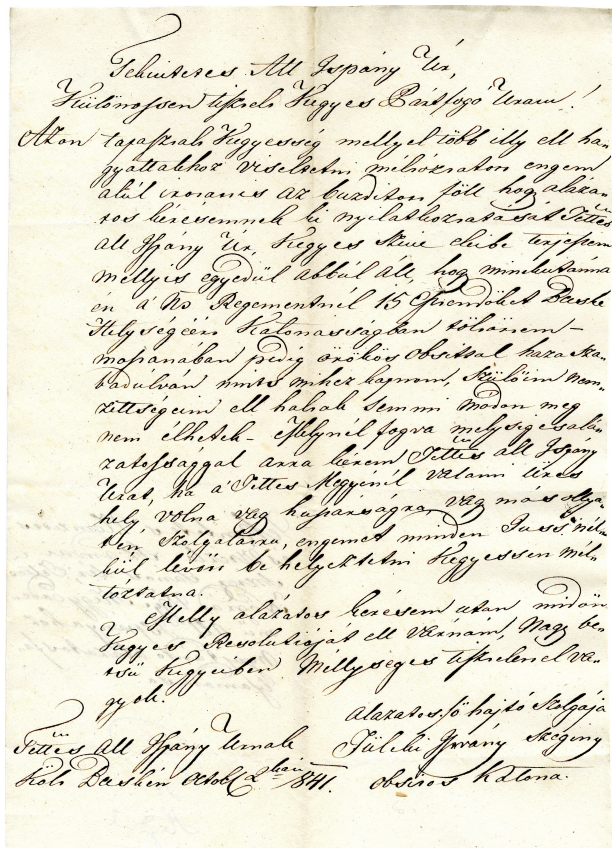 Tekintetes All Ispány Úr,
Külömössen tisztelt Kegyes Pártfogó Uram!
Azon tapasztalt Kegyesség mellyel több illy ell ha-
gyattakhoz viseltetni méltóztatott engem
alúl irottat is az buzditott föll hogy aláza-
tos kérésemnek ki nyilatkoztatását Tettes
all Ispány Úr, Kegyes Szive eleibe terjesszem
mellyis egyedül abbúl áll, hogy minekutánna
én á No Regementnél 15 Esztendőket Deshe
Helységéért Katonasságban töltöttem –
mostanában pedig örökös obsittal haza sza-
badulván nints mihez kapnom, Szülőim nem-
zettségeim ell haltak semmi módon meg
nem élhetek – Melynél fogva mélységes alá-
zatossággal arra kérem Tettes all Ispány
Urat, ha á Tettes Megyénél valami üres
hely vólna vagy hajdúságra vagy más ollya-
ten Szolgálatra, engemet minden Jusś nél-
kül lévőt bé helyeztetni Kegyessen mél-
tóztatna.
Melly alázatos kérésem után midőn
Kegyes Resolutioját ell várnám, Nagy be-
tsű Kegyeiben Méllységes tisztelettel va-
gyok.
alázatos fő hajtó Szolgája
Tettes All Ispány Urnak
Istvány Szegény
Költ Deshén Octob 2kán 1841.
obsitos Katona.